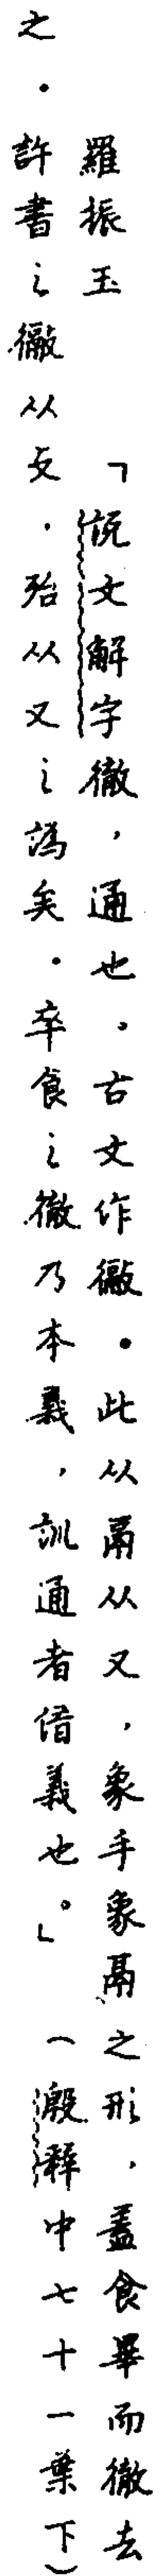 羅振玉　「說文解字徹，通也。古文作㣙。此从鬲从又，象手象鬲之形，蓋食畢而徹去
之。許書之㣙从攴，殆从又之譌矣。卒食之徹乃本義，訓通者借義也。」　（殷釋中七十一葉下）